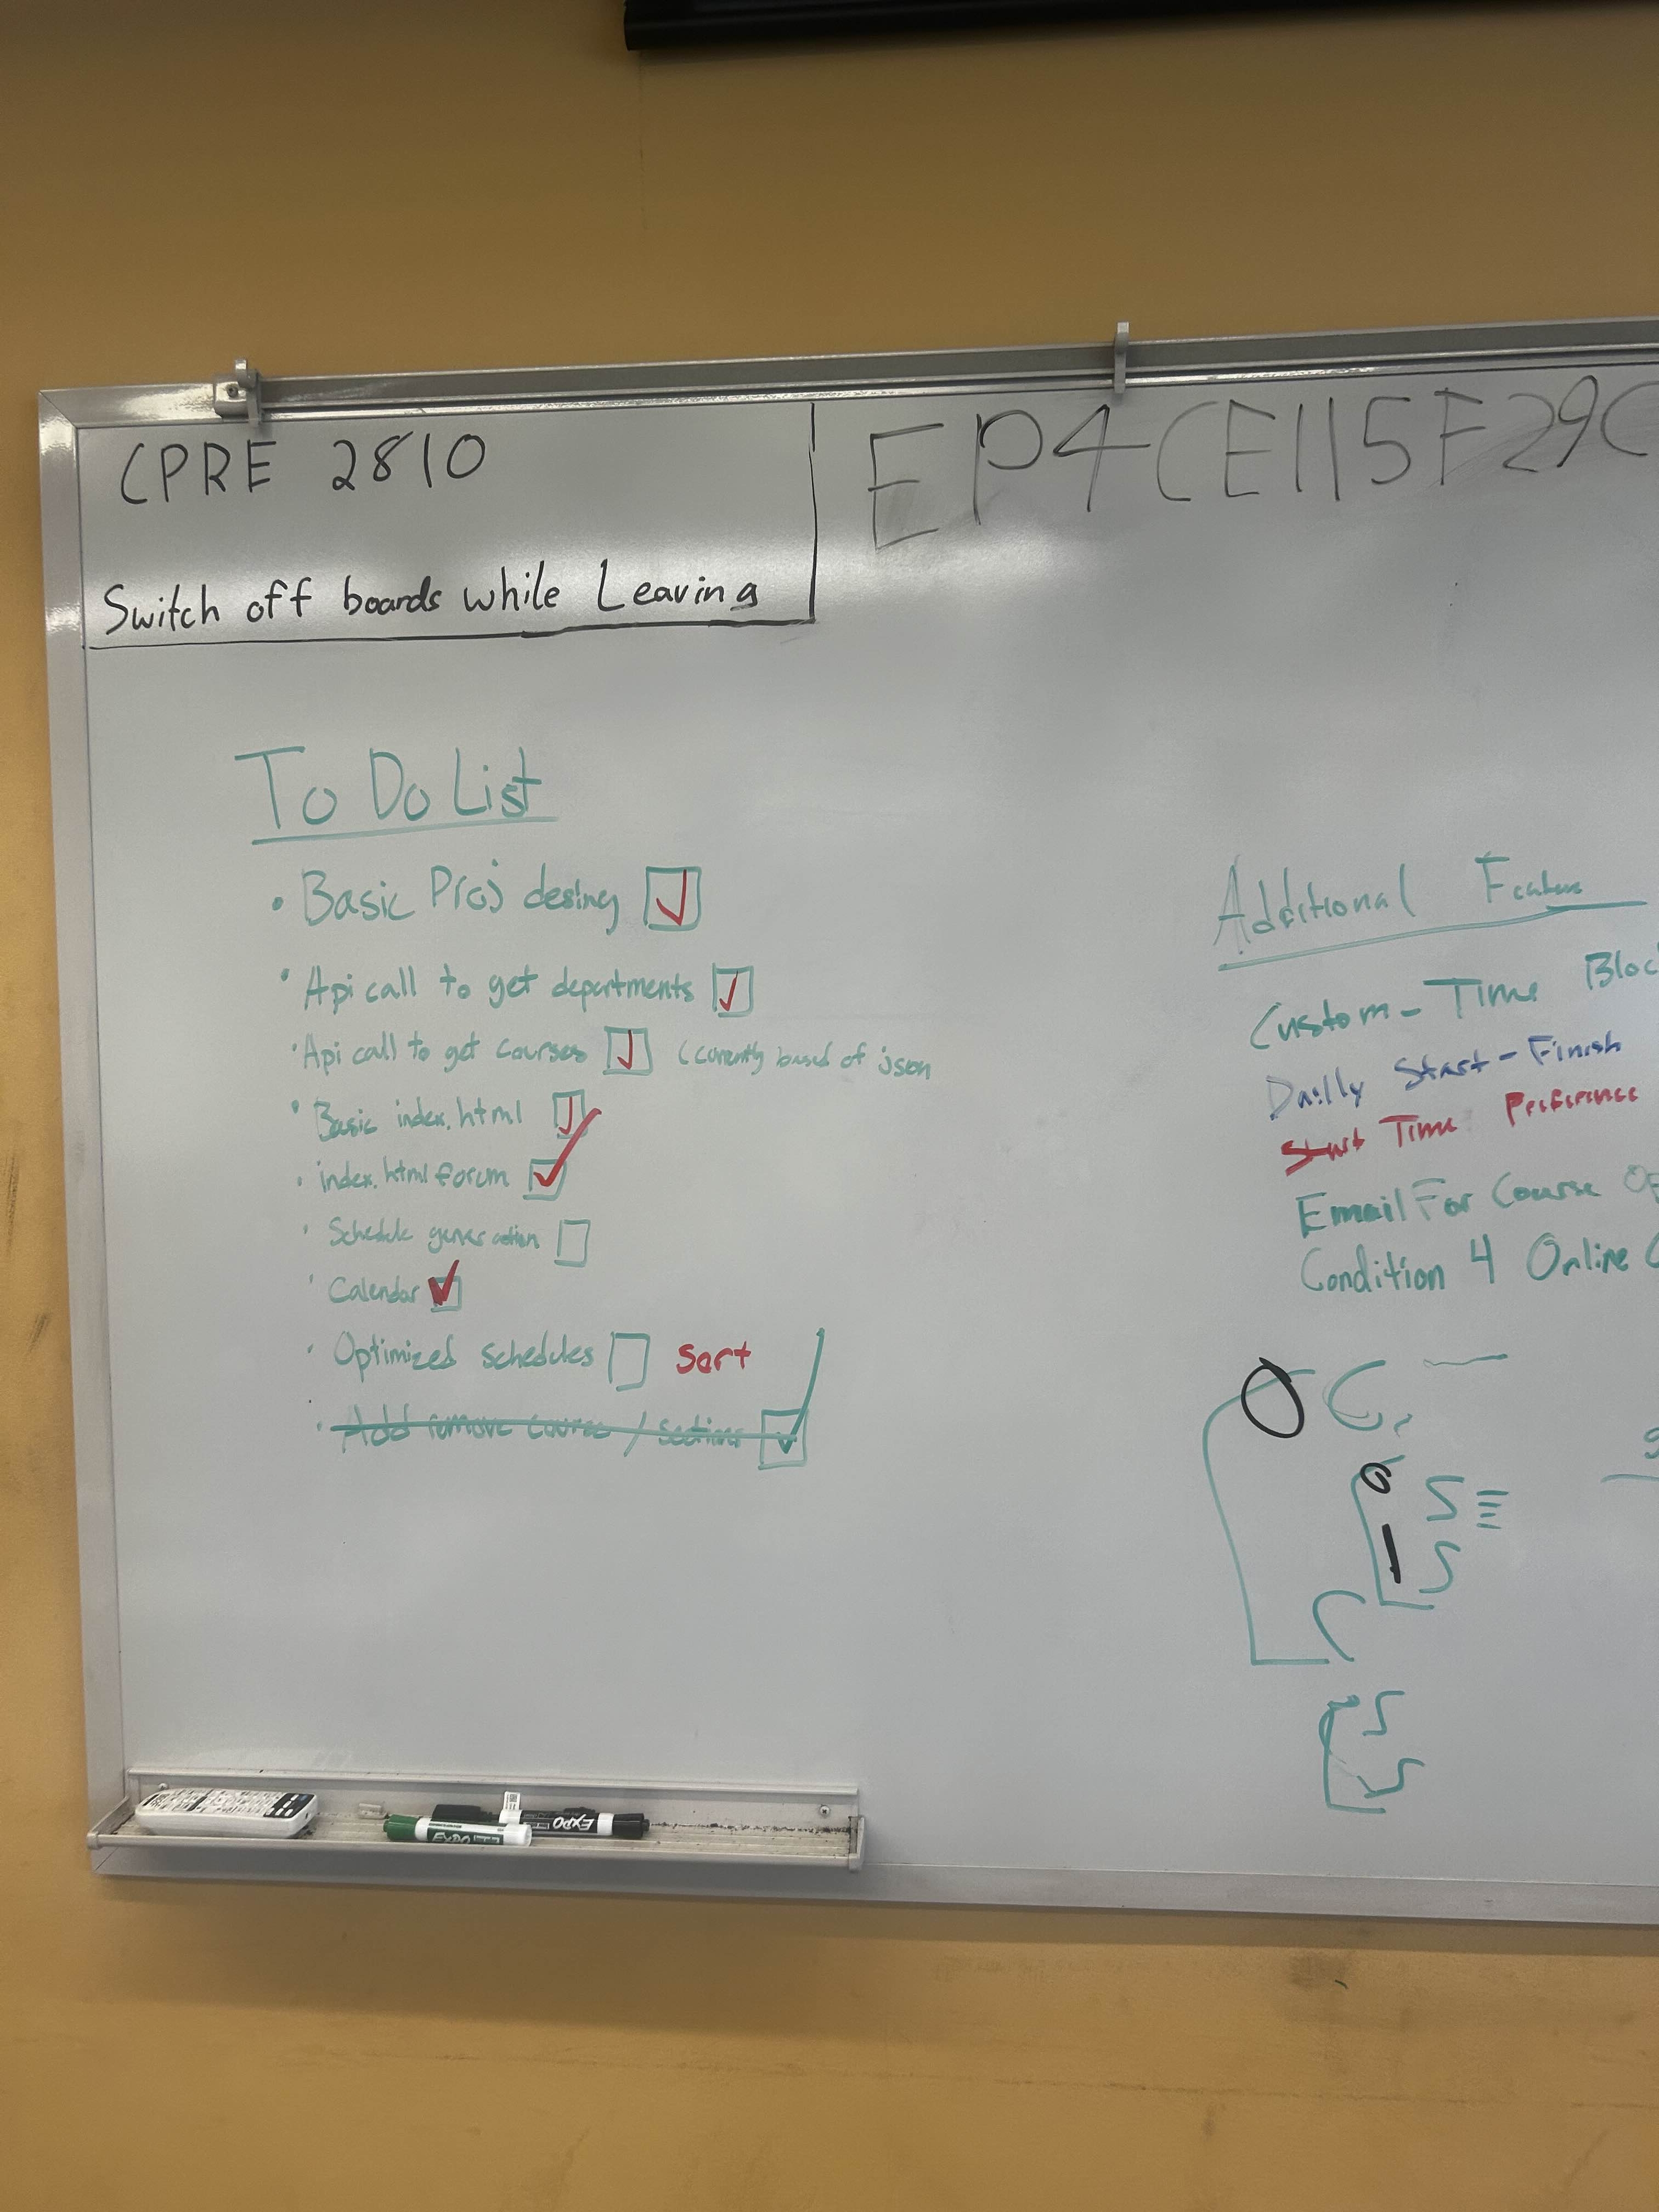 CPRE 2810
EP4CE115F29C
Switch off boards while Leaving
To Do List
• Basic Proj desing
• Api call to get departments
• Api call to get courses (currently based of json
• Basic index.html
• index.html forum
• Schedule generation
• Calendar
• Optimized schedules Sort
• Add remove course / sections
Additional Feature
Custom-Time Bloc
Dailly Start-Finish
Start Time Preference
Email For Course Op
Condition 4 Online C
C
S
S
C
S
S
EXPO
EXPO